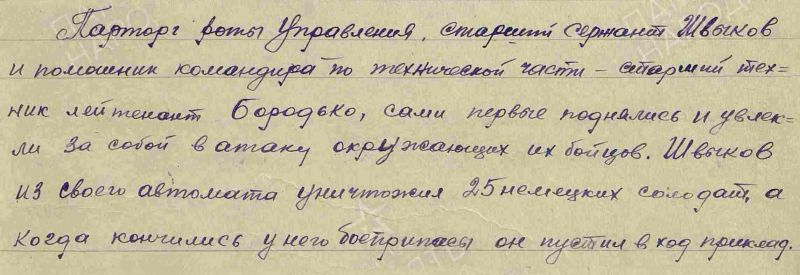 Парторг роты Управления, старший сержант Швыков
и помошник командира по технической части – старший тех=
ник лейтенант Бородько, сами первые поднялись и увлек=
ли за собой в атаку окружающих их бойцов. Швыков
из своего автомата уничтожил 25 немецких солодат, а
когда кончились у него боеприпасы он пустил в ход приклад.